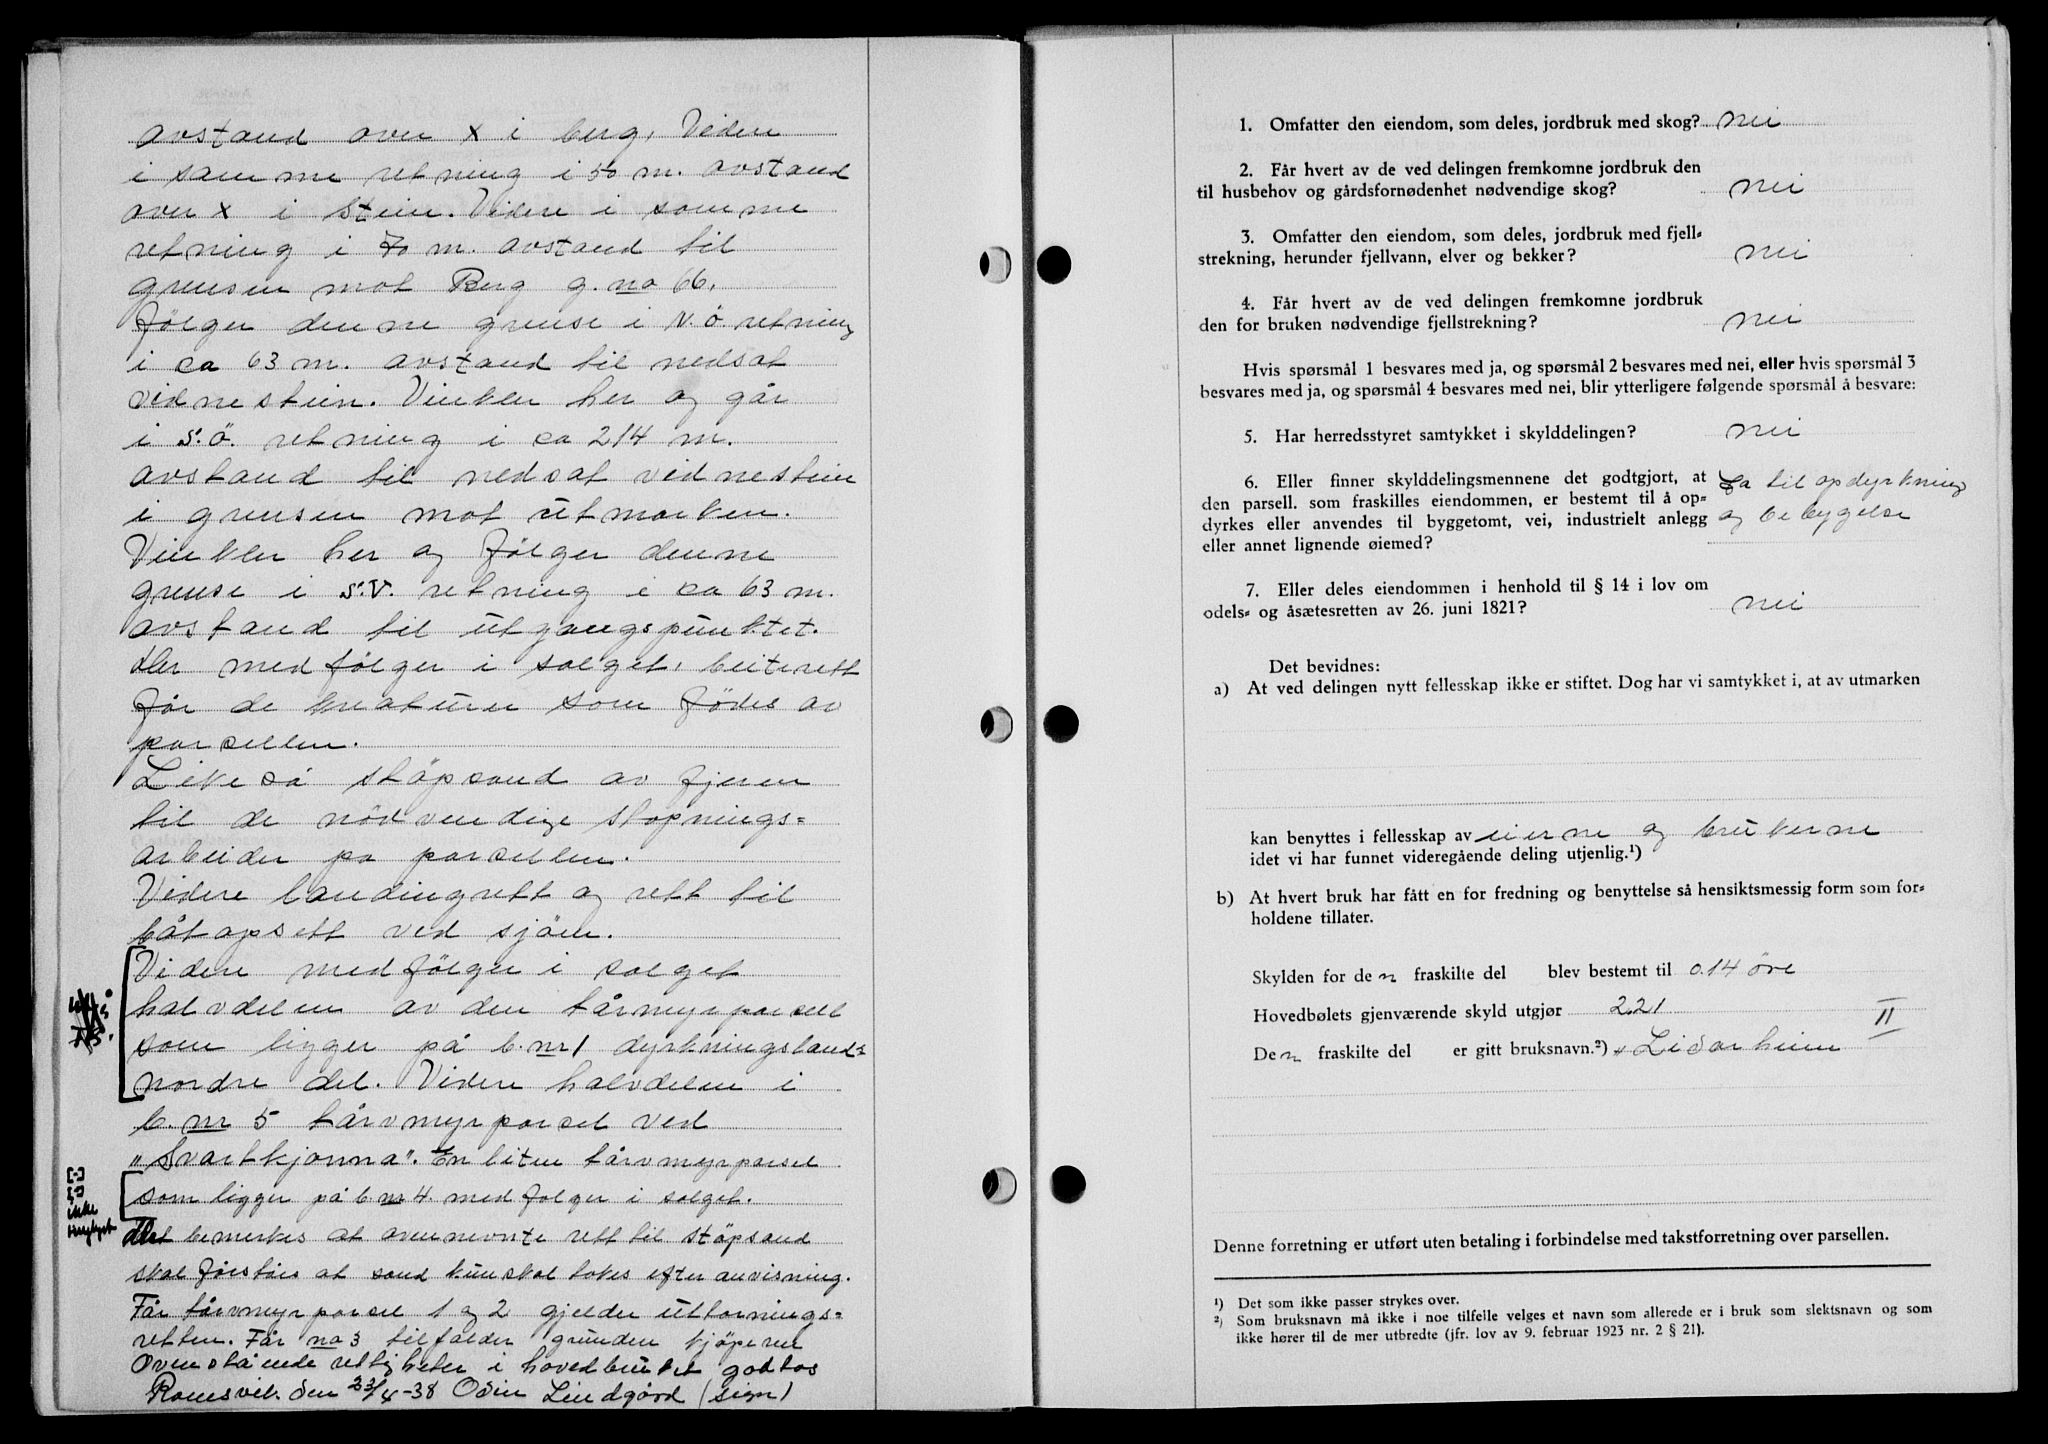 avstand over x i berg. Videre
i samme retning i 50 m. avstand
over x i stein. Videre i samme
retning i 70 m. avstand til
grensen mot Berg g. no 66.
Følger denne grense i N.ö. retning
i ca 63 m. avstand til nedsat
vidnestein. Vinkler her og går
i S.ö. retning i ca 214 m.
avstand til nedsat vidnestein
i grensen mot utmarken.
Vinkler her og følger denne
grense i S.V. retning i ca 63 m.
avstand til utgangspunktet.
Der medfölger i salget, beiterett
for de kreaturer som födes av
parsellen.
Likeså stöpsand av fjeren
til de nödvendige stöpnings=
arbeider på parsellen.
Videre landingrett og rett til
båtopsett ved sjöen.
Videre medfölger i salget
halvdelen av den tårvmyrparsell
som ligger på b. nr 1 dyrkningsland=
nordre del. Videre halvdelen i
b. nr 5 tårvmyrparsel ved
"Svartkjønna". En liten tårvmyrparsel
som ligger på b nr 4 medfølger i salget.
[-]
[-]
ikke
Det bemerkes at ovennevnte rett til stöpsand
skal forståes at sand kun skal takes efter anvisning.
Får tårvmyrparsel 1 og 2 gjelder uttorvnings=
retten. Får no 3 tilfalder grunden kjöperen
Ovenstående rettigheter i hovedbruket godtas
Ramsvik den 23/4-38 Odin Lindgård (sign)
1. Omfatter den eiendom, som deles, jordbruk med skog? nei
2. Får hvert av de ved delingen fremkomne jordbruk den
til husbehov og gårdsfornødenhet nødvendige skog? nei
3. Omfatter den eiendom, som deles, jordbruk med fjell=
strekning, herunder fjellvann, elver og bekker? nei
4. Får hvert av de ved delingen fremkomne jordbruk
den for bruken nødvendige fjellstrekning? nei
Hvis spørsmål 1 besvares med ja, og spørsmål 2 besvares med nei, eller hvis spørsmål 3
besvares med ja, og spørsmål 4 besvares med nei, blir ytterligere følgende spørsmål å besvare:
5. Har herredsstyret samtykket i skylddelingen? nei
6. Eller finner skylddelingsmennene det godtgjort, at Ja til opdyrkning
den parsell. som fraskilles eiendommen, er bestemt til å op=
dyrkes eller anvendes til byggetomt, vei, industrielt anlegg og bebygelse
eller annet lignende øiemed?
7. Eller deles eiendommen i henhold til § 14 i lov om
odels= og åsætesretten av 26. juni 1821? nei
Det bevidnes:
a) At ved delingen nytt fellesskap ikke er stiftet. Dog har vi samtykket i, at av utmarken
kan benyttes i fellesskap av eierne og brukerne
idet vi har funnet videregående deling utjenlig.¹)
b) At hvert bruk har fått en for fredning og benyttelse så hensiktsmessig form som for=
holdene tillater.
Skylden for den fraskilte del blev bestemt til 0.14 öre
Hovedbølets gjenværende skyld utgjør 2.21
II
Den fraskilte del er gitt bruksnavn.²) Lidarheim
Denne forretning er utført uten betaling i forbindelse med takstforretning over parsellen.
¹) Det som ikke passer strykes over.
²) Som bruksnavn må ikke i noe tilfelle velges et navn som allerede er i bruk som slektsnavn og som
ikke hører til de mer utbredte (jfr. lov av 9. februar 1923 nr. 2 § 21).